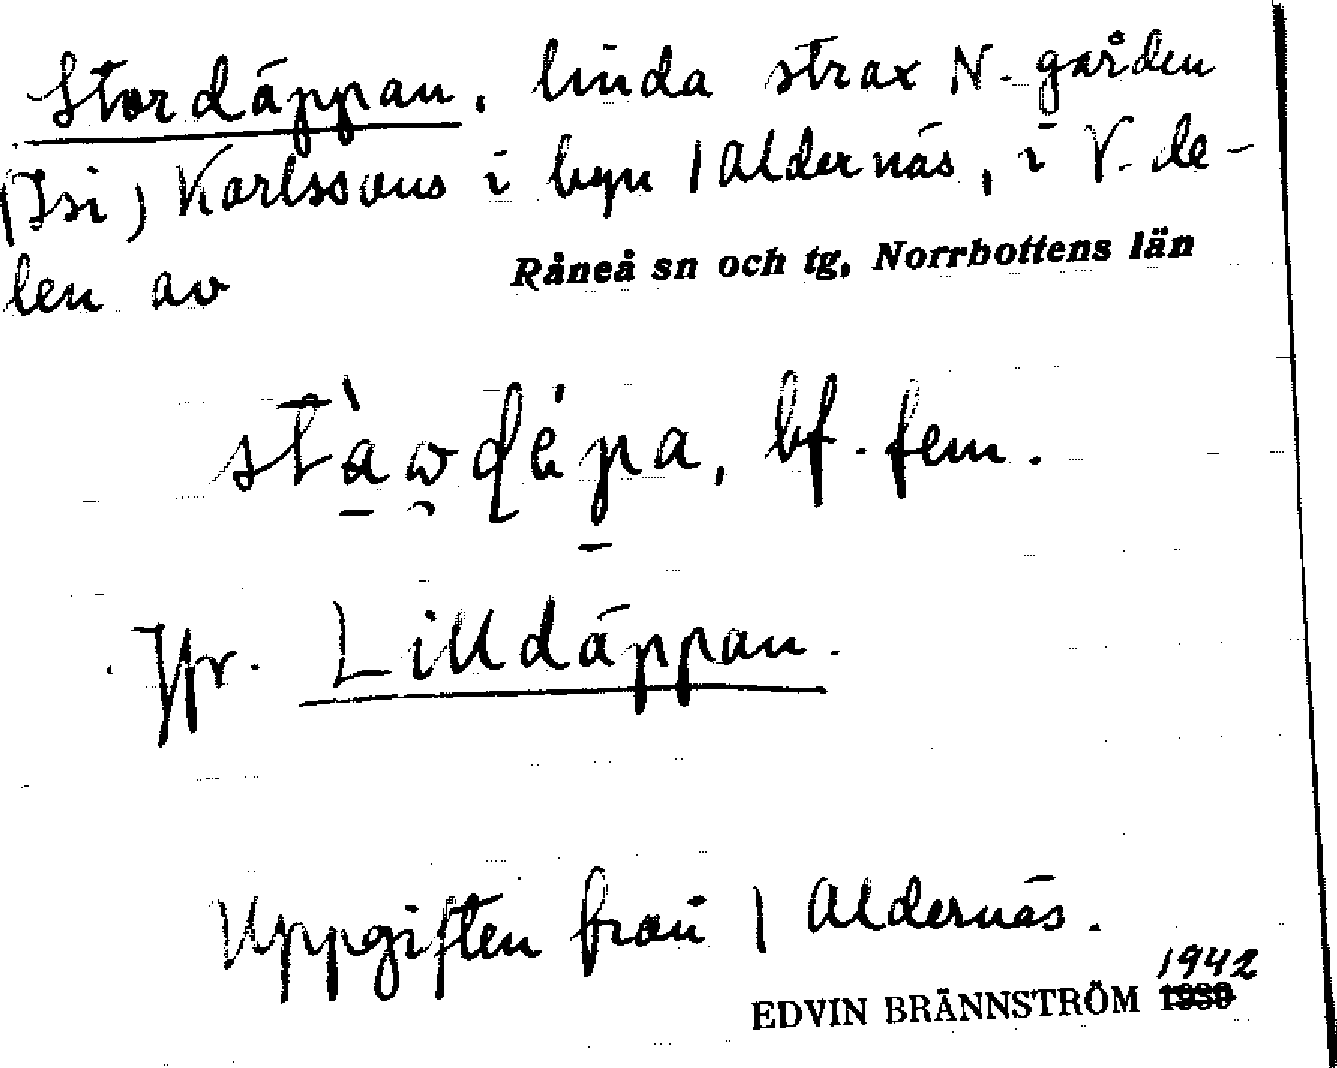 Stordäppan, linda strax N. gården
(Isi) Karlssons i byn 1 Aldernäs, i V. de-
len av Råneå sn och tg, Norrbottens län
bf. fem.
Jfr. Lilldäppan.
Uppgiften från 1 Aldernäs.
1942
EDVIN BRÄNNSTRÖM